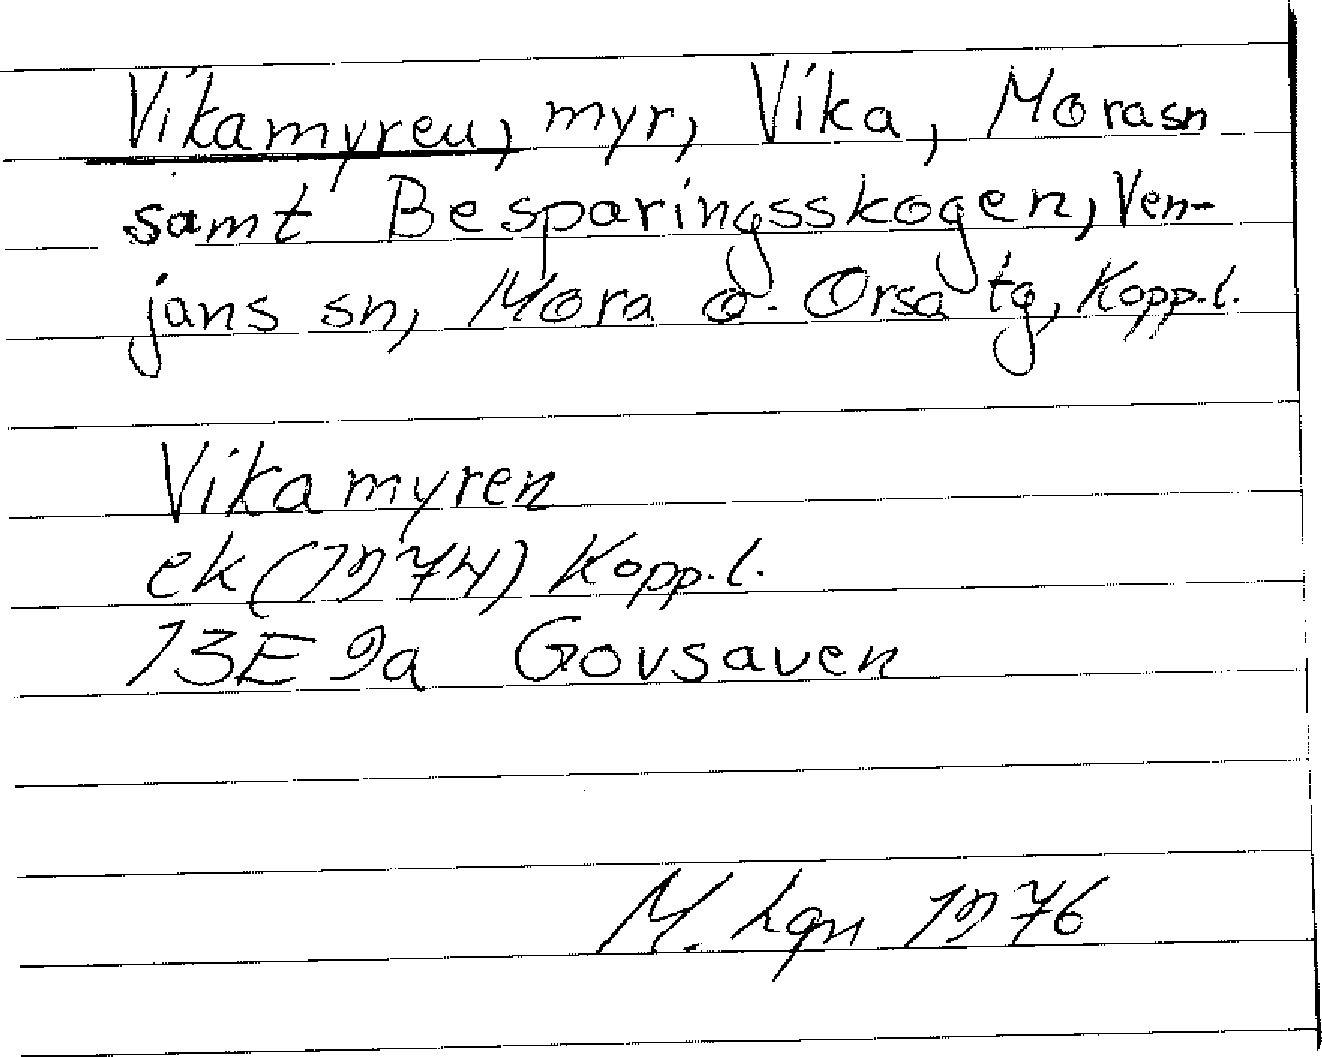 Vikamyren, myr, Vika, Mora sn
samt Besparingsskogen, Ven-
jans sn, Mora o. Orsa tg, Kopp.l.
Vikamyren
ek (1974) Kopp.l.
13E 9a Govsaven
M. Lgn 1976